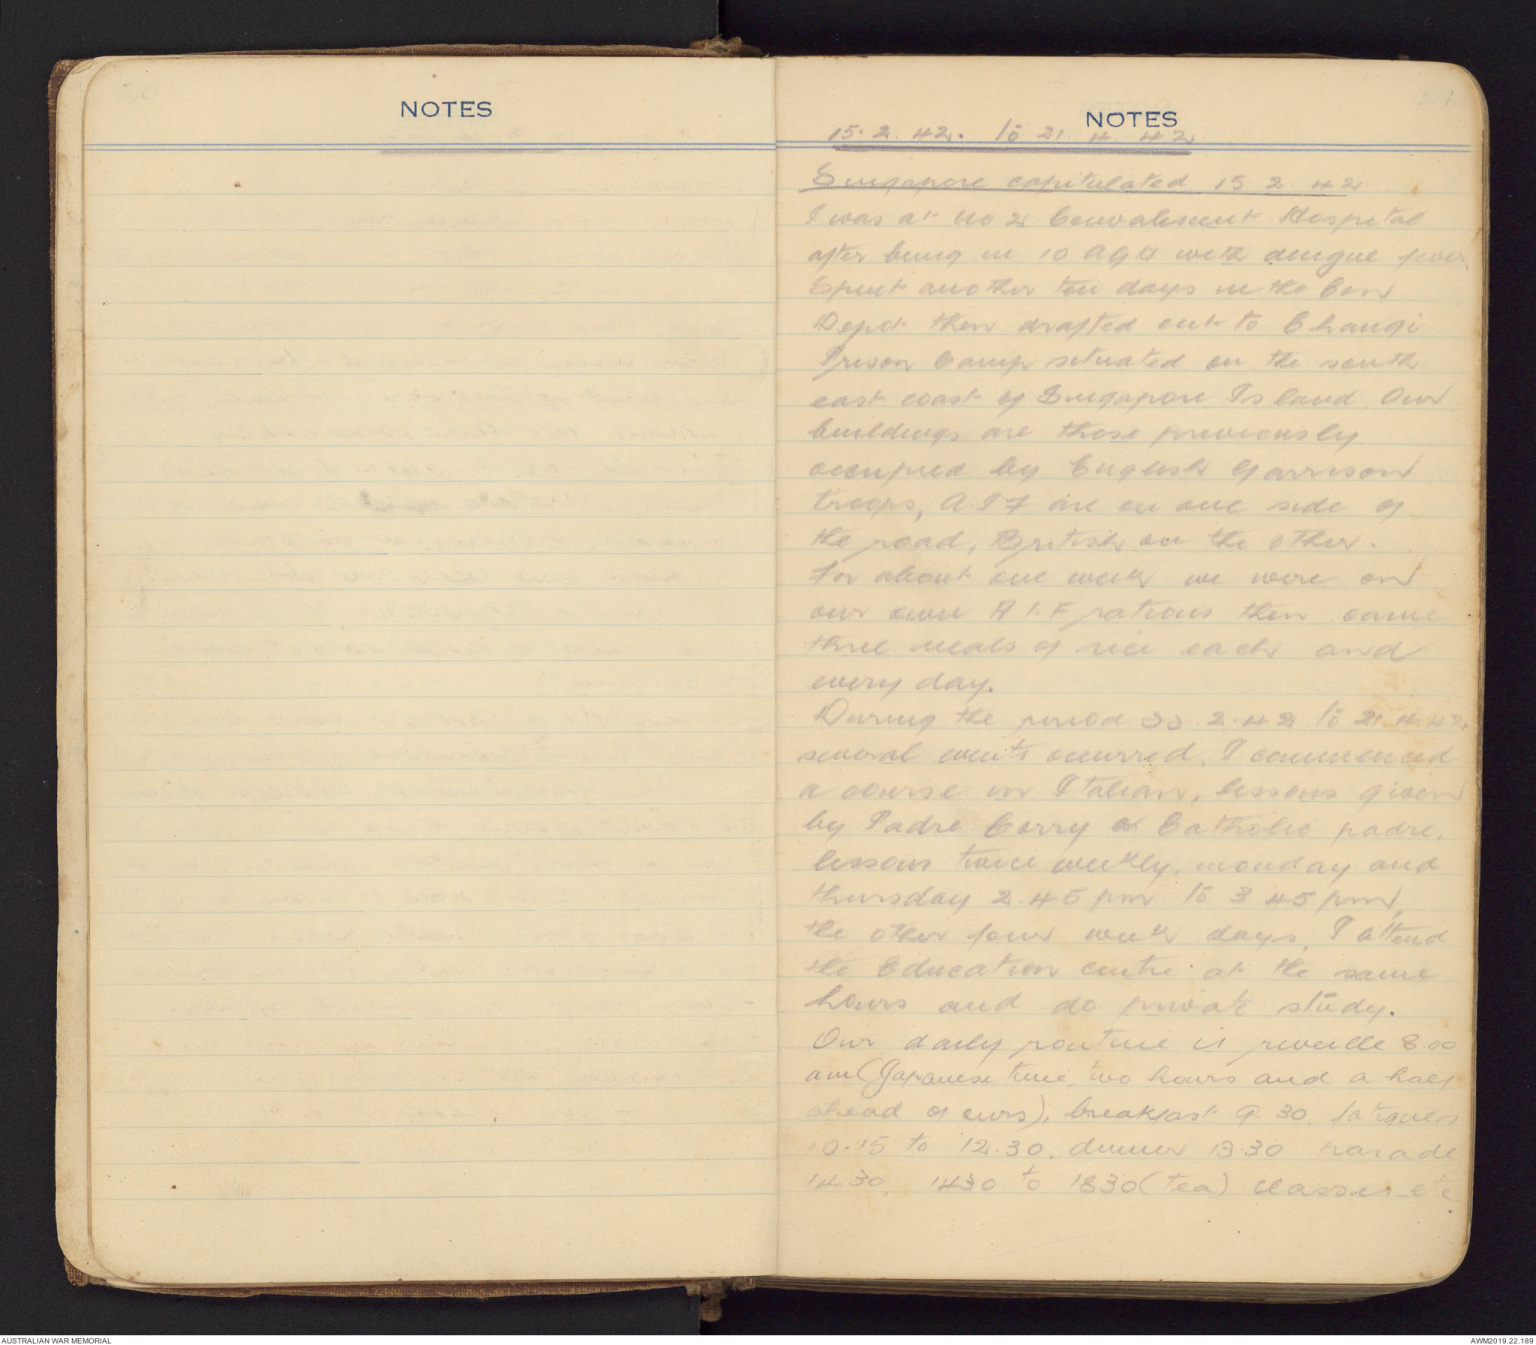 NOTES
NOTES
15.2.42. to 21 4 42
Singapore capitulated 15 2 42
I was at No 2 Convalescent Hospital
after being in 10 AGH with dengue fever.
Spent another ten days in the Con
Depot then drafted out to Changi
Prison Camp situated on the south
east coast of Singapore Island. Our
buildings are those previously
occupied by English Garrison
troops, AIF are on one side of
the road, British on the other.
For about one week we were on
our own A.I.F rations then came
three meals of rice each and
every day.
During the period 2.42 to 21.4.42,
several events occurred. I commenced
a course in Italian, lessons given
by Padre Corry a Catholic padre,
lessons twice weekly, monday and
thursday 2.45 pm to 3 45 pm,
the other four week days, I attend
the Education centre at the same
hours and do private study.
Our daily routine is reveille 8.00
am (Japanese time, two hours and a half
ahead of ours), breakfast 9.30, fatigues
10.15 to 12.30, dinner 13 30 parade
14 30, 1430 to 1830 (tea) classes etc
AUSTRALIAN WAR MEMORIAL
AWM2019.22.189